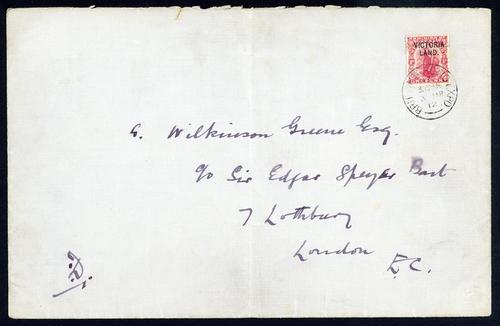 VICTORIA
LAND.
BRIT
EXPD
G. Wilkinson Greene Esq.
c/o Sir Edgar Speyer Bart
7 Lothbury
London
E.C.